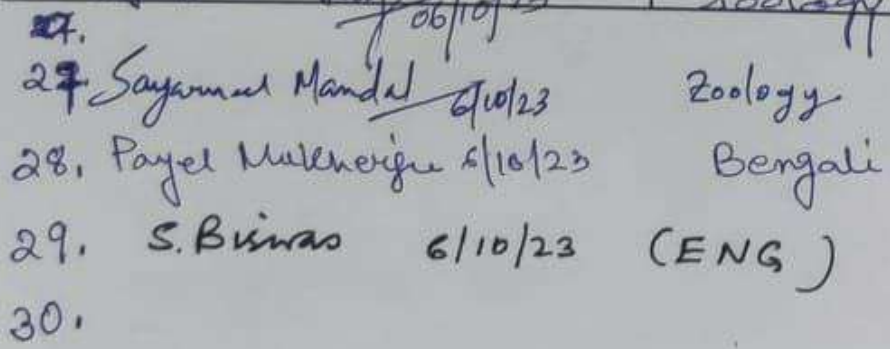 06/10/23 Zoology
27.
27. Sayarneel Mandal 6/10/23 Zoology
28. Payel Mukherjee 6/10/23 Bengali
29. S. Biswas 6/10/23 (ENG)
30.